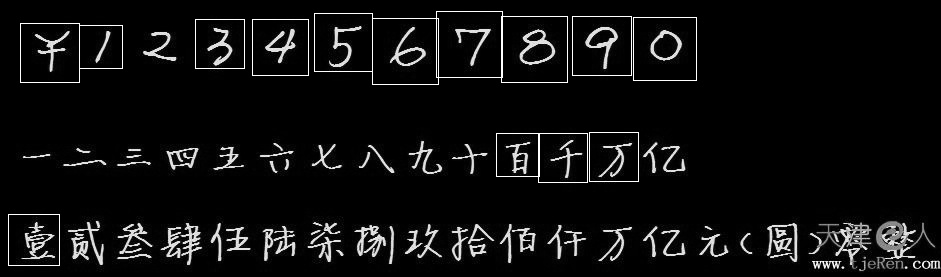 ¥1234567890
一二三四五六七八九十百千万亿
壹贰叁肆伍陆柒捌玖拾佰仟万亿元(圆)零整
天津 人
www.tjeRen.com